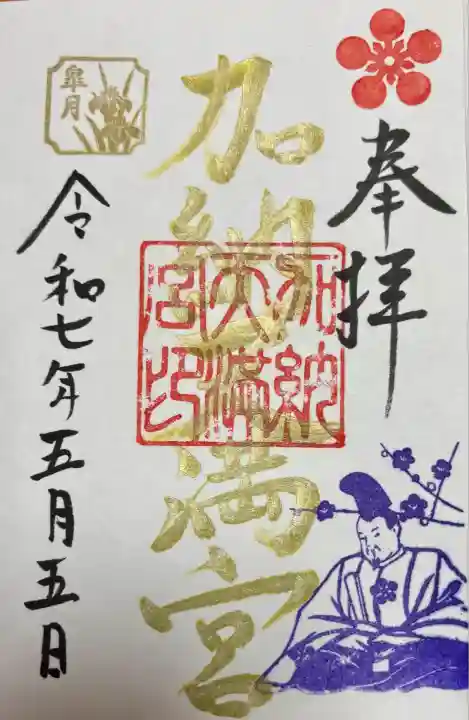 奉拝
加納天満宮
加納
天満
宮印
皐月
令和七年五月五日